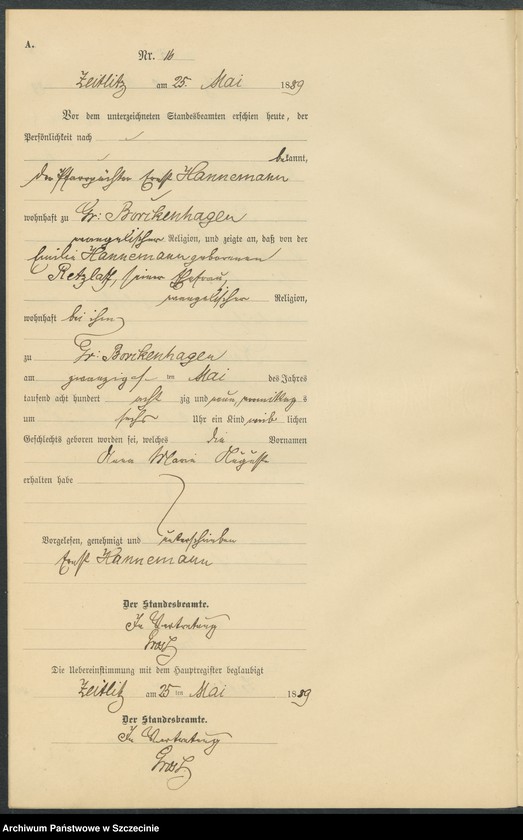 A.
Nr. 16
Zeitlitz am 25. Mai 1889
Vor dem unterzeichneten Standesbeamten erschien heute, der
Persönlichkeit nach
bekannt,
der Pfarrpächter Ernst Hannemann
wohnhaft zu Gr: Borckenhagen
evangelischer Religion, und zeigte an, daß von der
Emilie Hannemann geborenen
Retzlaff, seiner Ehefrau,
evangelischer Religion,
wohnhaft bei ihm
zu Gr: Borckenhagen
am zwanzigsten Mai des Jahres
tausend acht hundert acht zig und neun, vormittags
um sechs Uhr ein Kind weib lichen
Geschlechts geboren worden sei, welches die Vornamen
Marie Auguste
erhalten habe
Vorgelesen, genehmigt und unterschrieben
Ernst Hannemann
Der Standesbeamte.
In Vertretung
Die Uebereinstimmung mit dem Hauptregister beglaubigt
Zeitlitz am 25 ten Mai 1889
Der Standesbeamte.
In Vertretung
Archiwum Państwowe w Szczecinie